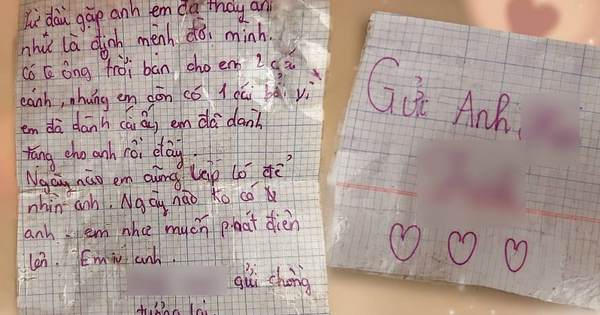 Từ đầu gặp anh em đã thấy anh
như là định mệnh đời mình.
Có lẽ ông trời ban cho em 2 cái
cánh, nhưng em còn có 1 cái bởi vì
em đã dành cái ấy em đã dành
tặng cho anh rồi đấy.
Ngày nào em cũng lấp ló để
nhìn anh. Ngày nào ko có
anh em như muốn phát điên
lên. Em iu anh.
gửi chồng
tương lai
Gửi Anh